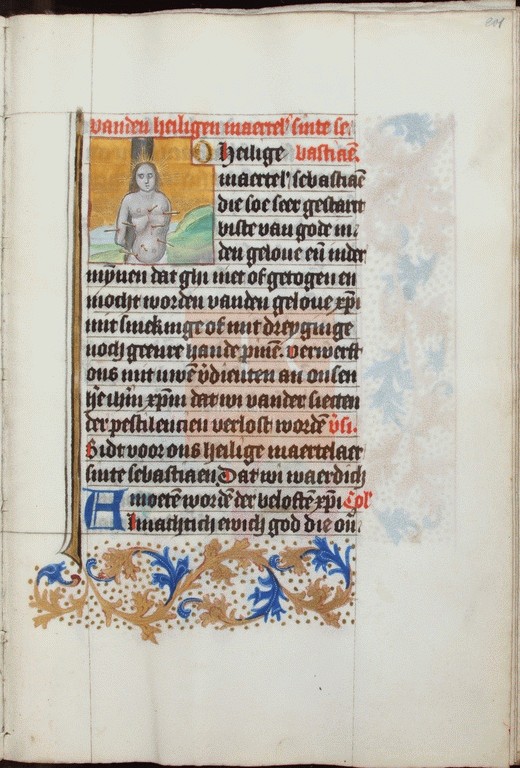 201
vanden heiligen maertel' sinte se
O heilige bastiaē.
maertel' sebastiaē
die soe seer gestarct
biste van gode in
den geloue eñ inder
mȳnen dat ghi niet of getogen en
mocht worden vanden geloue xp̄i
mit smekinge of mit dreyginge
noch geenre hande pine. verwerft
ons mit uwē v̄dienten an onsen
h̄e ih̄m xp̄m dat wi vander siecten
der pestilencien verlost wordē v̄si.
Bidt voor ons heilige maertelaer
sinte sebastiaen. Dat wi waerdich
moetē wordē der beloftē xp̄i Col'
Almachtich ewich god die ou